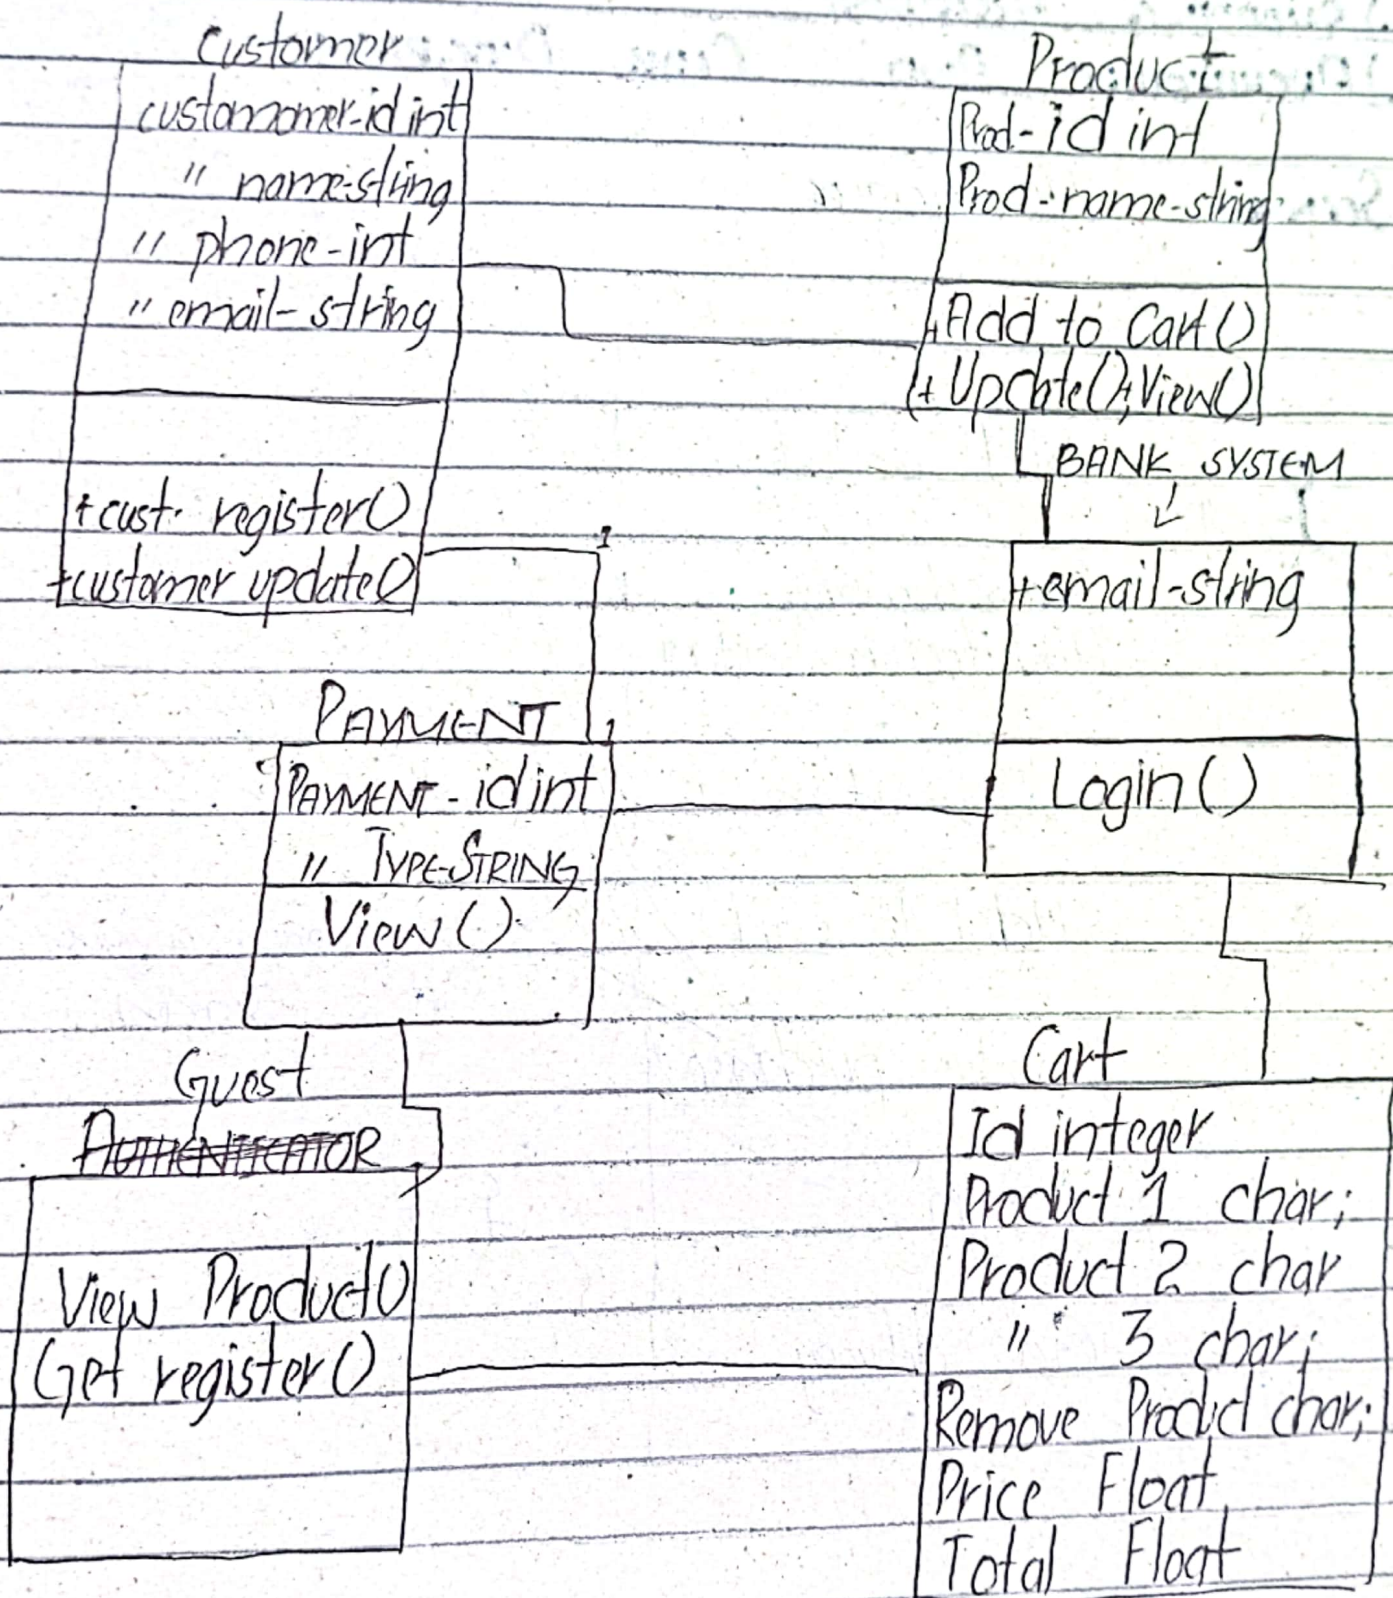 Customer
customomer-id int
" name-string
" phone-int
" email-string
+cust. register()
+customer update()
Product
Prod-id int
Prod-name-string
+Add to Cart()
+Update();View()
BANK SYSTEM
+email-string
Login()
1
1
PAYMENT
PAYMENT-id int
" TYPE-STRING
View()
Guest
AUTHENTICATOR
View Product()
Get register()
Cart
Id integer
Product 1 char;
Product 2 char
" 3 char;
Remove Product char;
Price Float
Total Float